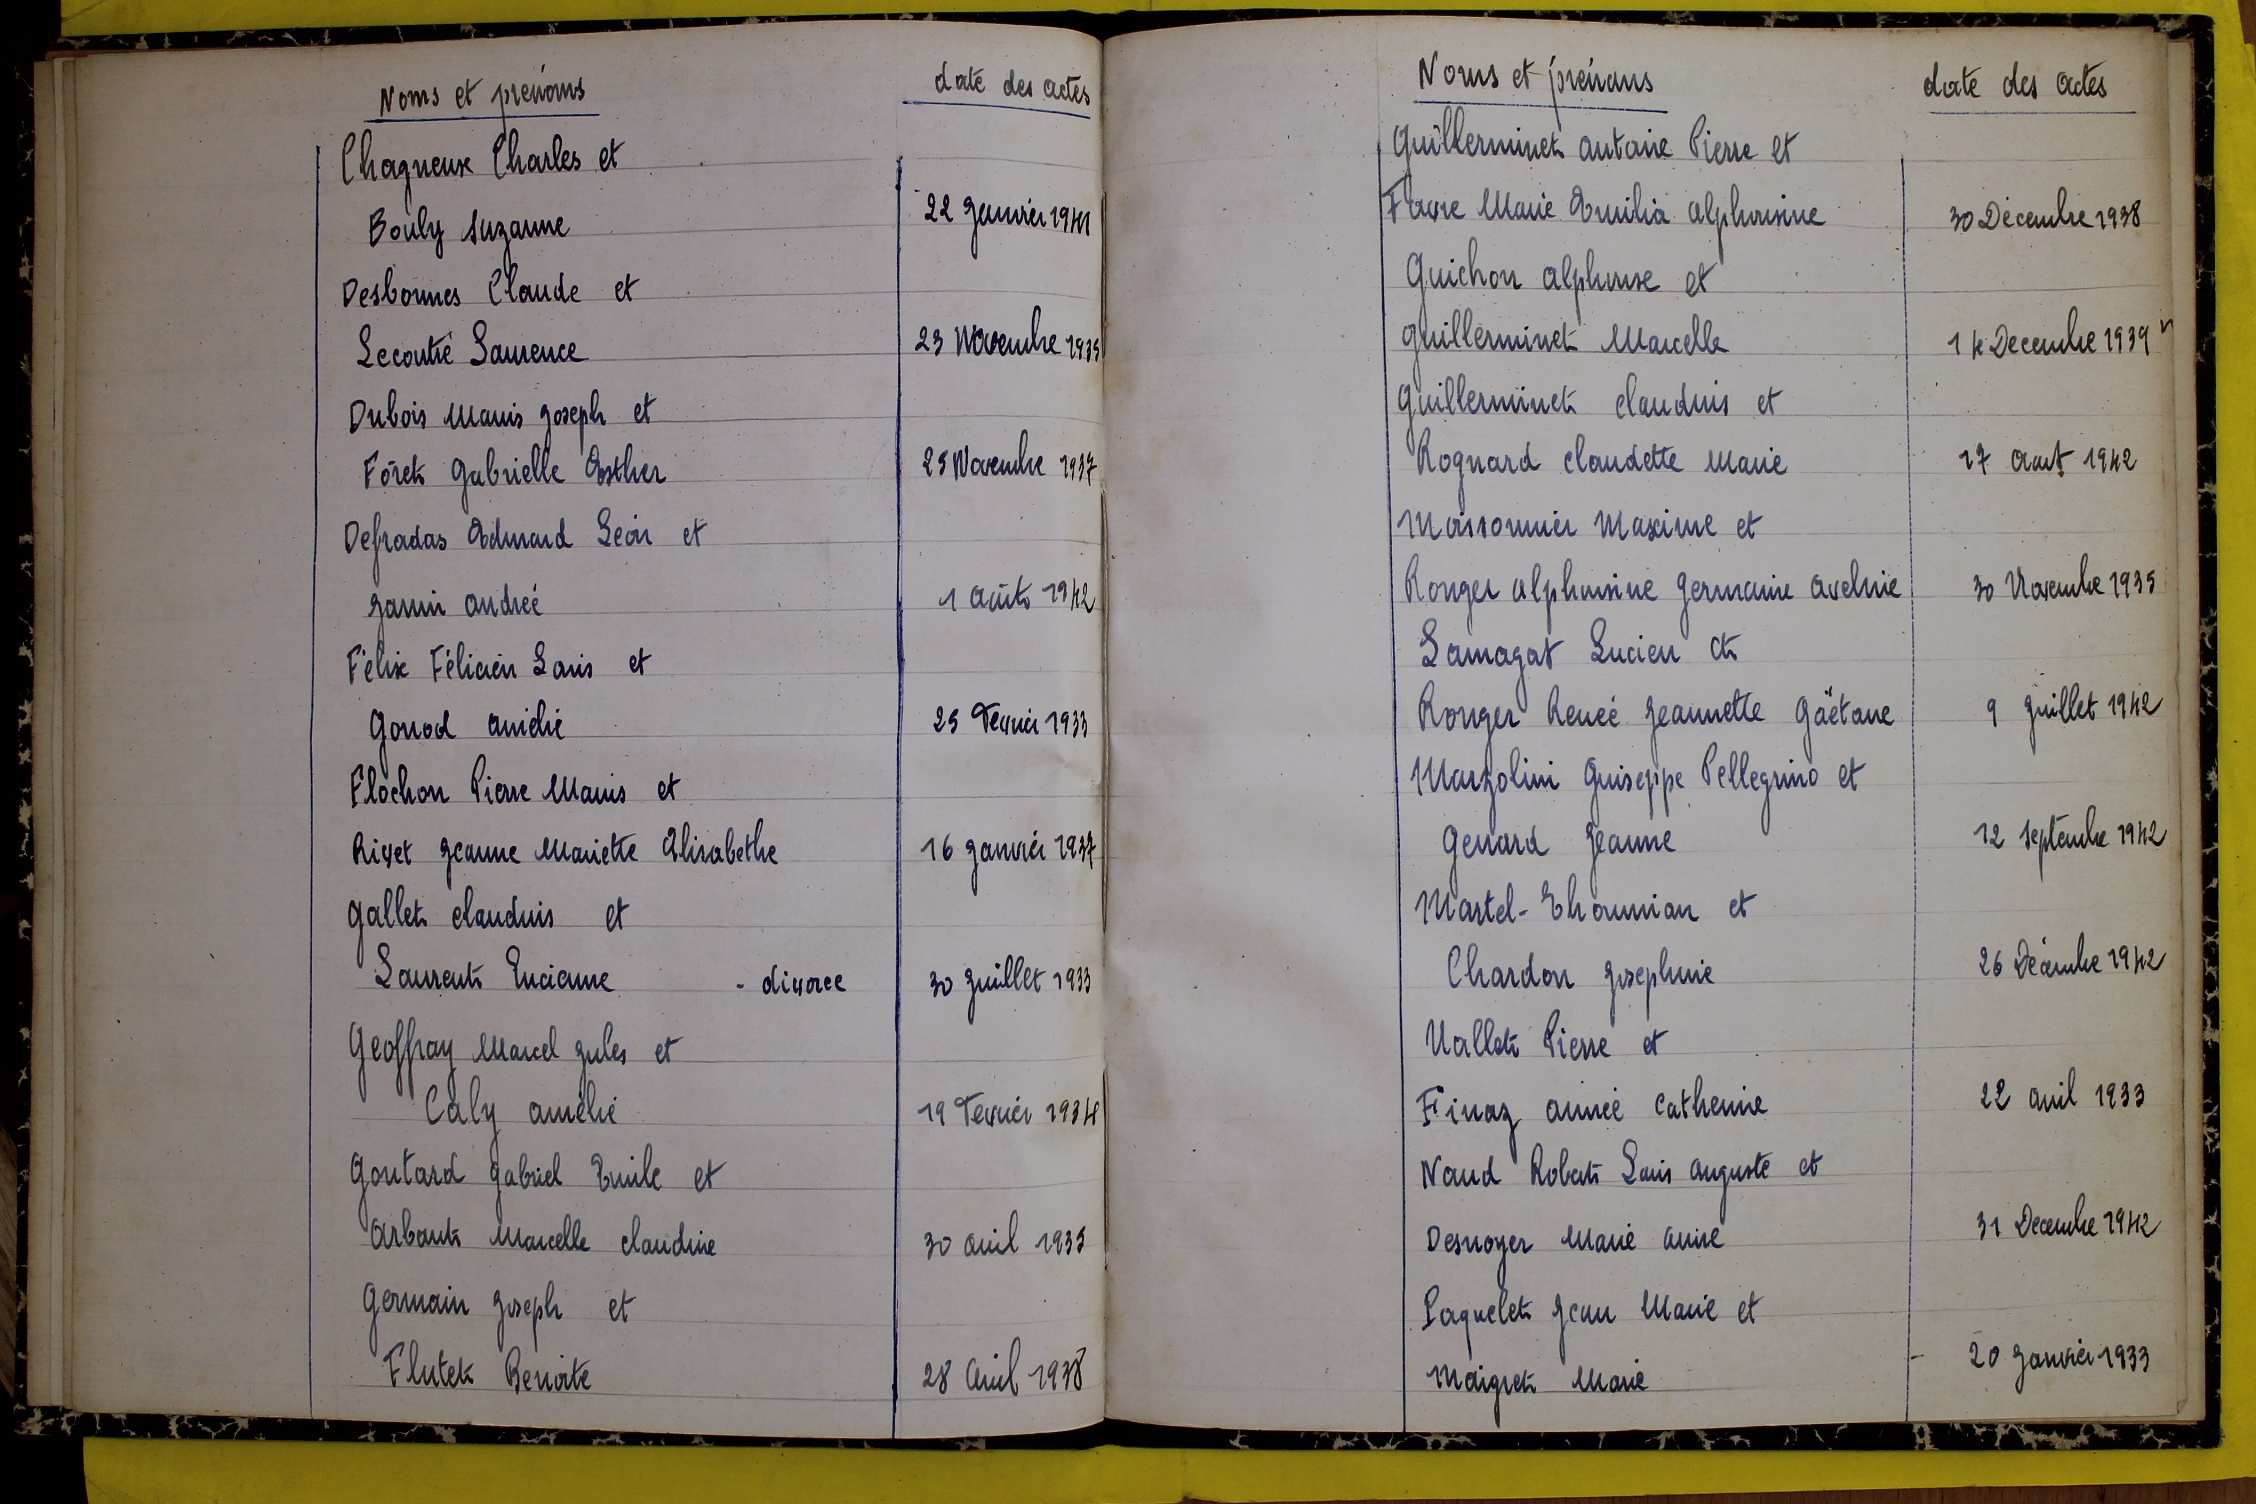 Noms et prénoms date des actes
Chagneux Charles et
Bouly Suzanne 22 Janvier 1941
Desbonnes Claude et
Lecoutre Laurence 23 Novembre 1935
Dubois Marius Joseph et
Forêt Gabrielle Esther 25 Novembre 1937
Defradas Edmond Léon et
Janin Andrée 1 Août 1942
Félix Félicien Louis et
Gonod Amélie 25 Février 1933
Flochon Pierre Marius et
Rivet Jeanne Mariette Elisabethe 16 Janvier 1937
Gallet Claudius et
Laurent Lucienne - divorce 30 Juillet 1933
Geoffray Marcel Jules et
Caly Amélie 19 Février 1934
Goutard Gabriel Emile et
Arbant Marcelle Claudine 30 Avril 1935
Germain Joseph et
Flutet Benoite 28 Avril 1938
Noms et prénoms date des actes
Guillerminet Antoine Pierre et
Favre Marie Emilia Alphonsine 30 Décembre 1938
Guichon Alphonse et
Guillerminet Marcelle 14 Decembre 1939
Guillerminet Claudius et
Rognard Claudette Marie 17 Aout 1942
Moissonnier Maxime et
Ronger Alphonsine Germaine Aveline 30 Novembre 1935
Lamagat Lucien et
Ronger Renée Jeannette Gaëtane 9 Juillet 1942
Marzolini Guiseppe Pellegrino et
Genard Jeanne 12 Septembre 1942
Martel-Thoumian et
Chardon Josephine 26 Décembre 1942
Nallet Pierre et
Finaz Aimée Catherine 22 Avril 1933
Naud Robert Louis Auguste et
Desnoyer Marie Anne 31 Decembre 1942
Paquelet Jean Marie et
Maigret Marie - 20 Janvier 1933